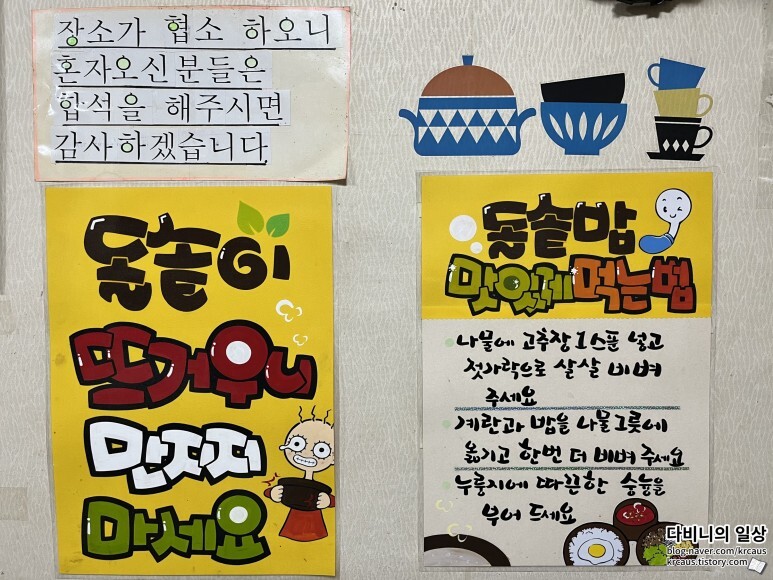 장소가 협소 하오니
혼자오신분들은
합석을 해주시면
감사하겠습니다
돌솥이
뜨거우니
만지지
마세요
돌솥밥
맛있게 먹는법
나물에 고추장 1스푼 넣고
젓가락으로 살살 비벼
주세요
계란과 밥을 나물그릇에
옮기고 한번 더 비벼 주세요
누룽지에 따끈한 숭늉을
부어 드세요
다비니의 일상
blog.naver.com/krcaus
krcaus.tistory.com